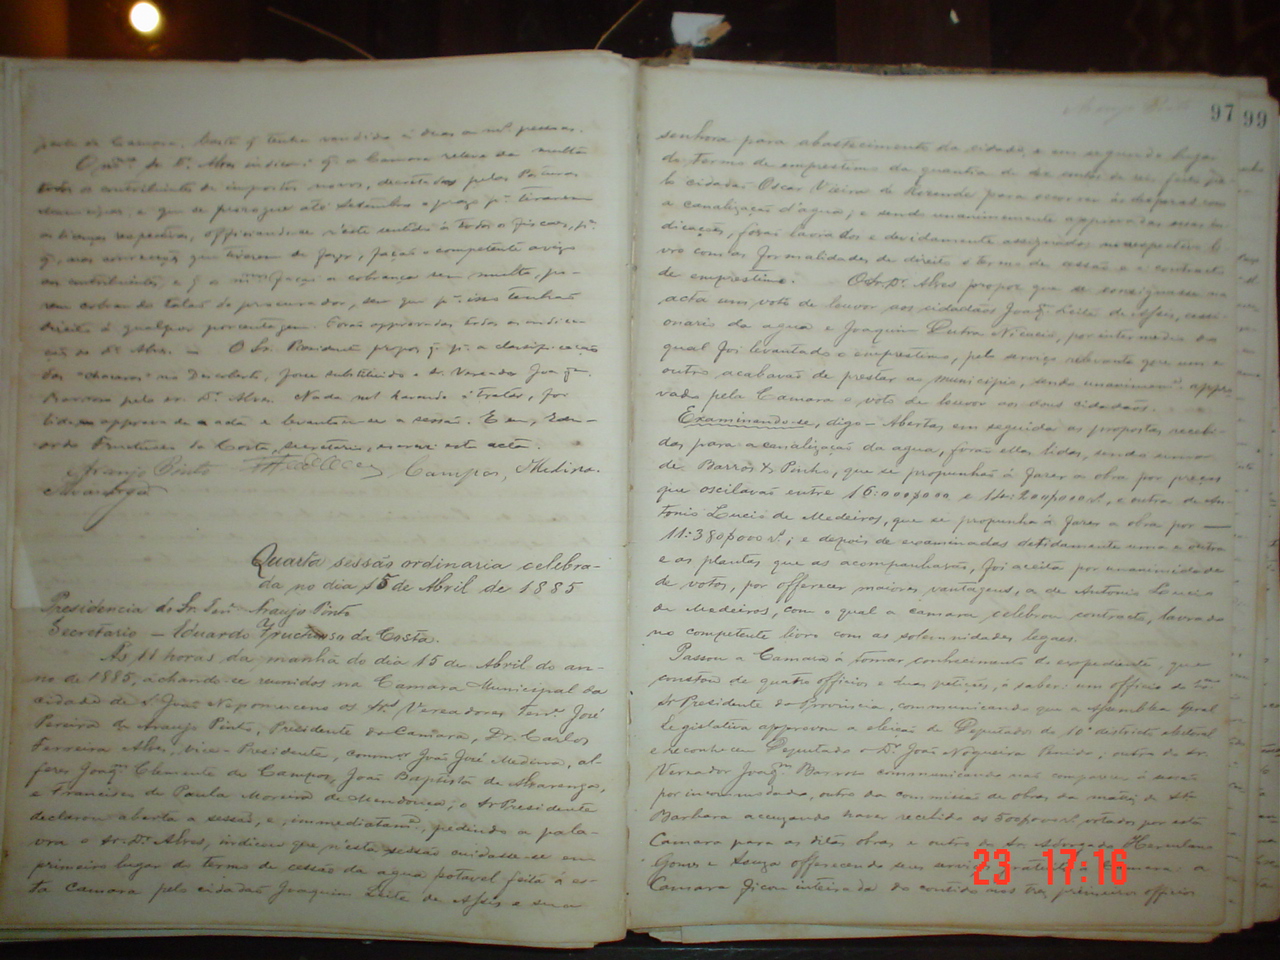 parte da Camara, visto q tenha vendido á duas ou mais pessoas.
O mmo. Sr. Dr. Alves indicou q a Camara releve da multa
todos os contribuintes de impostos novos, decretados pelas Posturas
municipaes, e que se prorogue até Setembro o prazo pa. tirarem
as licenças respectivas, officiando-se n'este sentido á todos os fiscaes, pa.
q, nas cobranças que tiverem de fazer, fação o competente aviso
aos contribuintes, e q os mmos. fação a cobrança sem multa, po-
rem cobrar do talão do procurador, sem que pa. isso tenhão
direito á qualquer porcentagem. Forão approvadas todas as indica-
ções do Dr. Alves. — O Sr. Presidente propoz q pa. a classificação
das "chacaras" no Descoberto, fosse substituido o sr. Vereador Joaqm.
Barroso pelo sr. Dr. Alves. Nada mais havendo á tratar, foi
lida e approvada a acta e levantou-se a sessão. E eu, Edu-
ardo Fructuoso da Costa, secretario, escrevi esta acta.
Araujo Pinto Campos, Medina.
Alvarenga
Quarta sessão ordinaria celebra-
da no dia 15 de Abril de 1885
Presidencia do Sr. Tene. Araujo Pinto
Secretario — Eduardo Fructuoso da Costa.
Ás 11 horas da manhã do dia 15 de Abril do an-
no de 1885, achando-se reunidos na Camara Municipal da
cidade de S. João Nepomuceno os Srs. Vereadores Tene. José
Pereira de Araujo Pinto, Presidente da Camara, Dr. Carlos
Ferreira Alves, vice-Presidente, commor. João José Medina, al-
feres Joaqm. Clemente de Campos, João Baptista de Alvarenga,
e Francisco de Paula Moreira de Mendonça; o Sr. Presidente
declarou aberta a sessão, e, immediatamte., pedindo a pala-
vra o sr. Dr. Alves, indicou que n'esta sessão cuidasse-se em
primeiro lugar do termo de cessão da agua potavel feita á es-
ta camara pelo cidadão Joaquim Leite de Assis e sua
Araujo Pinto
97 99
senhora para abastecimento da cidade, e em segundo lugar
do termo de emprestimo da quantia de dez contos de reis feito pe-
lo cidadão Oscar Vieira de Rezende para occorrer ás despezas com
a canalização d'agua; e sendo unanimemente approvadas essas in-
dicações, forão lavrados e devidamente assignados no respectivo li-
vro com as formalidades de direito o termo de cessão e o contracto
de emprestimo. O Sr. Dr. Alves propoz que se consignasse na
acta um voto de louvor aos cidadãos Joaqm. Leite de Assis, cessi-
onario da agua e Joaquim Dutra Nicacio, por intermedio do
qual foi levantado o emprestimo, pelo serviço relevante que um e
outro acabavão de prestar ao municipio, sendo unanimente. appro-
vado pela Camara o voto de louvor aos dous cidadãos.
Examinando-se, digo— Abertas em seguida as propostas recebi-
das para a canalização da agua, forão ellas lidas, sendo uma
de Barros & Pinho, que se propunhão á fazer a obra por preços
que oscilavão entre 16:000$000 e 14:200$000 rs., e outra de An-
tonio Lucio de Medeiros, que se propunha á fazer a obra por —
11:380$000 rs.; e depois de examinadas detidamente uma e outra
e as plantas que as acompanhavão, foi aceita por unanimidade
de votos, por offerecer maiores vantagens, a de Antonio Lucio
de Medeiros, com o qual a camara celebrou contracto, lavrado
no competente livro com as solemnidades legaes.
Passou a Camara á tomar conhecimento do expediente, que
constou de quatro officios e duas petições, á saber: um officio do Exmo.
Sr Presidente da Provincia, communicando que a Assemblea Geral
Legislativa approvou a eleição de Deputado do 10º districto eleitoral
e reconheceu Deputado o Dr. João Nogueira Penido; outro do sr.
Vereador Joaqm. Barroso communicando não comparecer á sessão
por incommodado, outro da commissão de obras da matriz de Sta.
Barbara accuzando haver recebido os 500$000 rs. votados por esta
Camara para as ditas obras e outro do Sr. Advogado Herculano
Gomes e Souza offerecendo seus serviços gratuitos á Camara: a
Camara ficou inteirada do contido nos tres primeiros officios
23 17:16